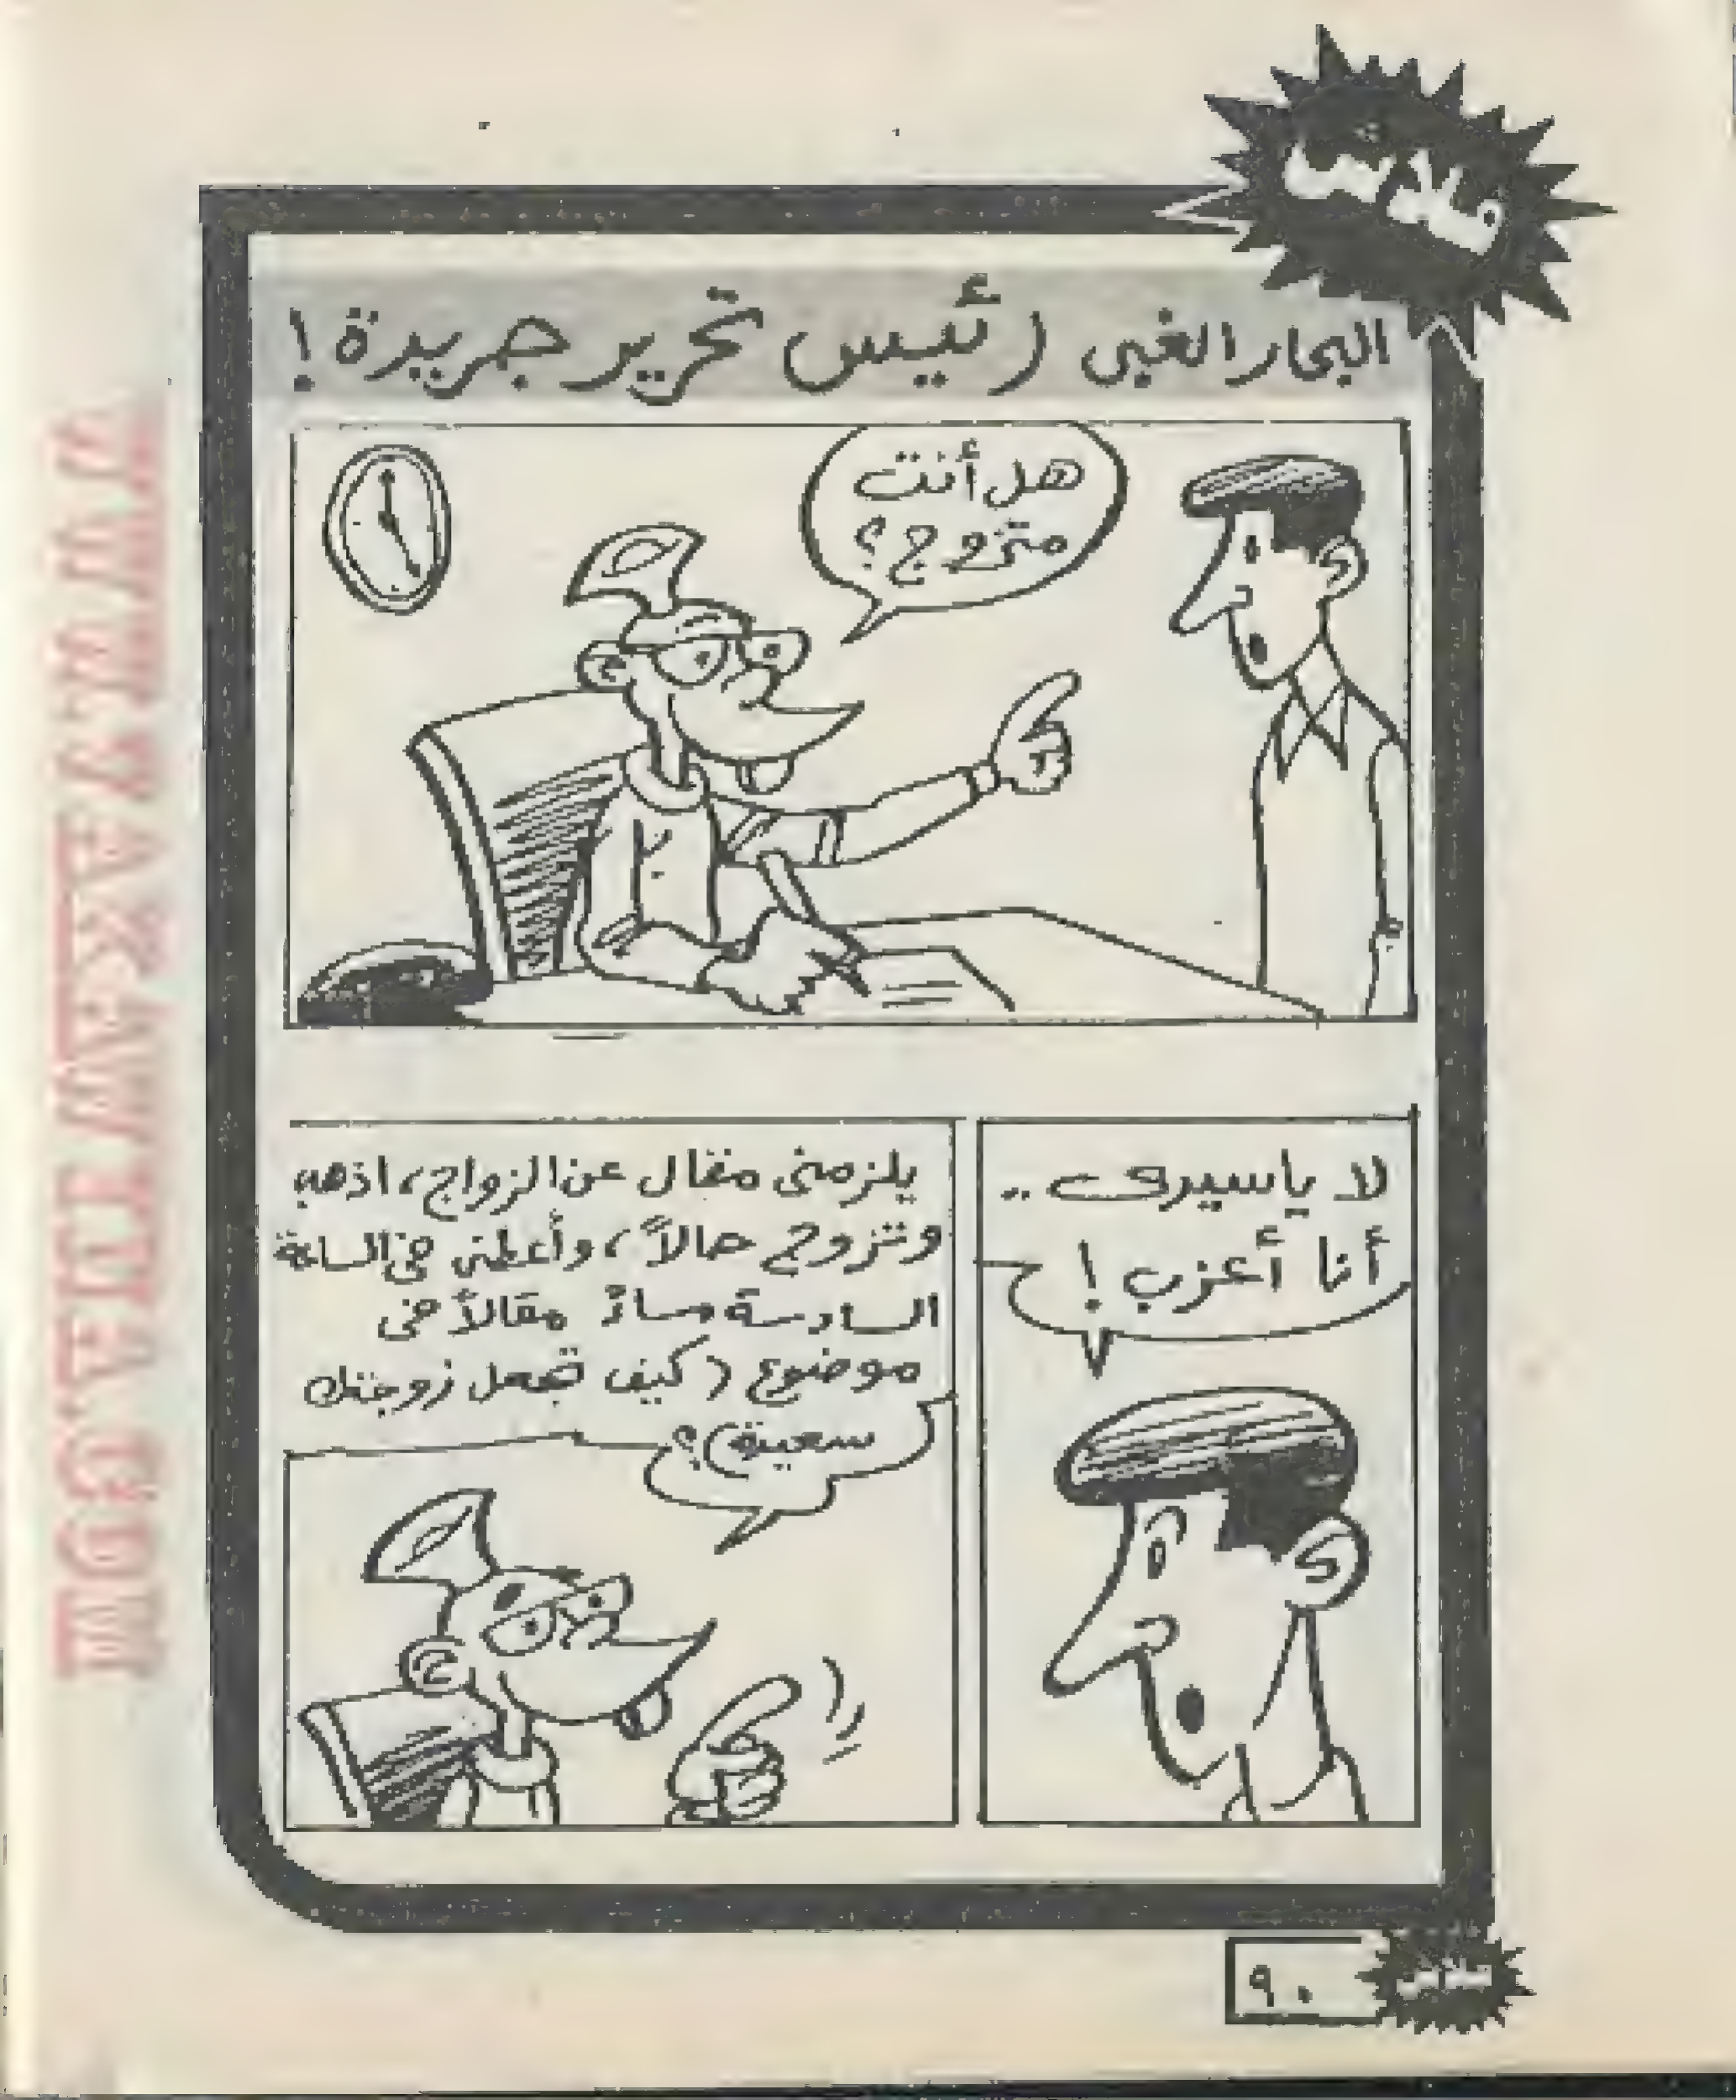 فلاش
البحار الغبى (رئيس تحرير جريدة!
هل أنت
متزوج؟
لا ياسيدى ..
أنا أعزب!
يلزمنى مقال عن الزواج، اذهب
وتزوج حالاً، وأعطنى فى الساعة
السادسة مساءً مقالاً فى
موضوع (كيف تجعل زوجتك
سعيدة)؟
فلاش
٩٠